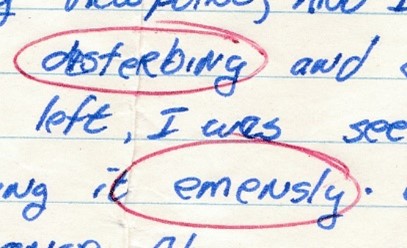 disterbing and
left, I was see
ng it emensly.